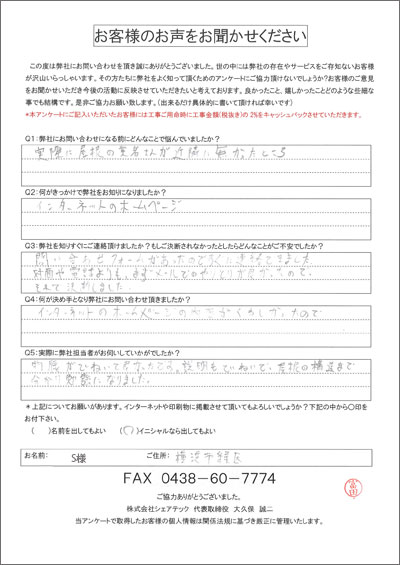 お客様のお声をお聞かせください
この度は弊社にお問い合わせを頂き誠にありがとうございました。世の中には弊社の存在やサービスをご存知ないお客様
が沢山いらっしゃいます。その方たちに弊社をよく知って頂くためのアンケートにご協力頂けないでしょうか?お客様のご意見
をお聞かせいただき今後の活動に反映させていただきたいと考えております。良かったこと、嬉しかったことどのような些細な
事でも結構です。是非ご協力お願い致します。(出来るだけ具体的に書いて頂ければ幸いです)
*本アンケートにご記入いただいたお客様には工事ご用命時に工事金額(税抜き)の2%をキャッシュバックさせていただきます。
Q1:弊社にお問い合わせになる前にどんなことで悩んでいましたか?
実際に屋根の業者さんが近隣に無かったところ
Q2:何がきっかけで弊社をお知りになりましたか?
インターネットのホームページ
Q3:弊社を知りすぐにご連絡頂けましたか?もしご決断されなかったとしたらどんなことがご不安でしたか?
問い合わせフォームがあったので
まずメールでのやりとりができたので、
それで決断しました。
Q4:何が決め手となり弊社にお問い合わせ頂きましたか?
インターネットのホームページの内容がくわしかったので
Q5:実際に弊社担当者がお伺いしていかがでしたか?
説明もていねいで、屋根の構造まで
分かり勉強になりました。
*上記についてお願いがあります。インターネットや印刷物に掲載させて頂いてもよろしいでしょうか?下記の中から〇印を
お付け下さい。
( )名前を出してもよい (〇)イニシャルなら出してもよい
お名前: S様 ご住所: 横浜市緑区
FAX 0438-60-7774
ご協力ありがとうございました。
株式会社シェアテック 代表取締役 大久保 誠二
当アンケートで取得したお客様の個人情報は関係法規に基づき厳正に管理いたします。